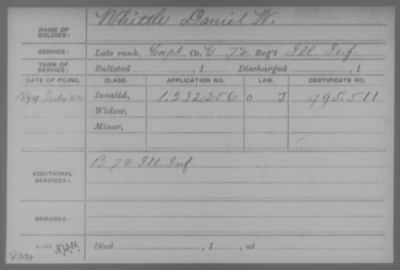 NAME OF SOLDIER: Whittle Daniel W.
SERVICE: Late rank, Capt. Co. G 72 Reg't Ill. Inf.
TERM OF SERVICE: Enlisted , 1 Discharged , 1
DATE OF FILING. CLASS. APPLICATION NO. LAW. CERTIFICATE NO.
Invalid, 1,232,256 995.511
Widow,
Minor,
ADDITIONAL SERVICES: B 72 Ill. Inf
REMARKS:
Died , 1 , at